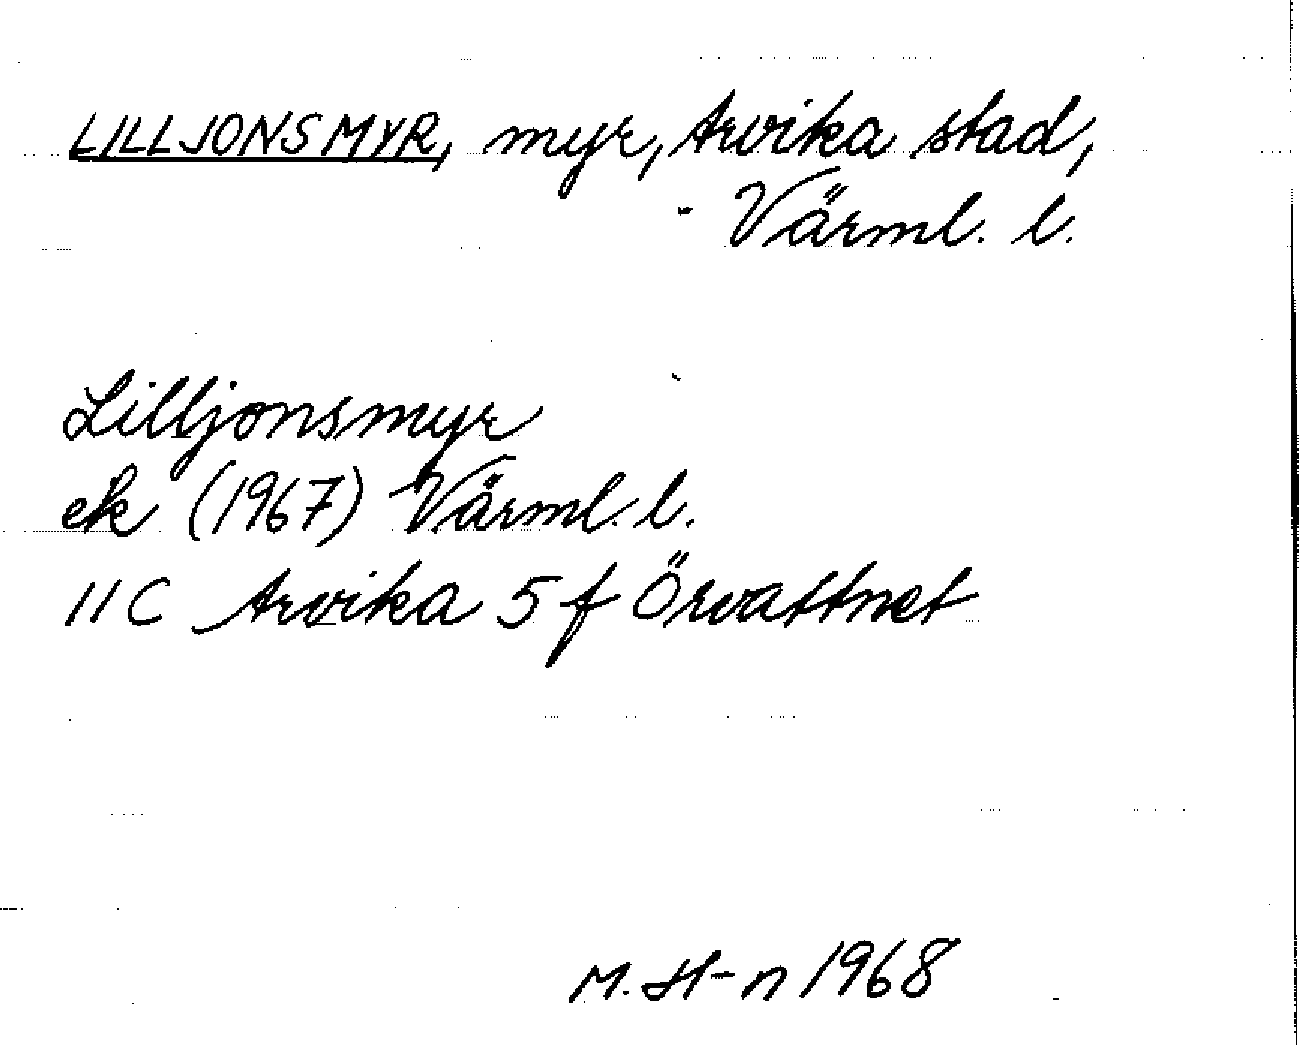 LILLJONSMYR, myr, Arvika stad,
Värml. l.
Lilljonsmyr
ek (1967) Värml. l.
11C Arvika 5f Örvattnet
M. H-n 1968